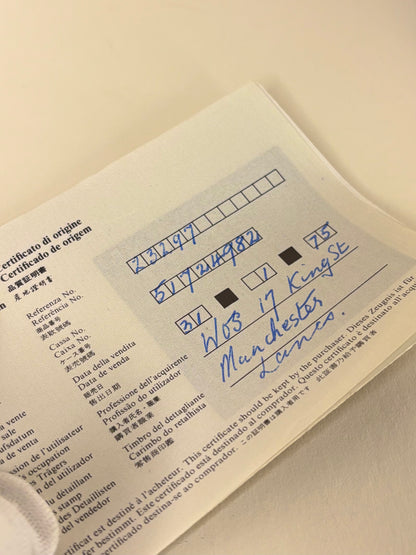 ertificato di origine
Certificado de origem
品質証明書
産地證明書
Referenza No.
Referência No.
商品番号
Cassa No.
Caixa No.
ケース番号
表殼號碼
Data della vendita
Data de venda
販売日
售出日期
Professione dell'acquirente
Profissão do utilizador
購入者氏名・職業
購買者職業
Timbro del dettagliante
Carimbo do retalhista
零售商印鑑
23297
51724982
31 1 75
WOS 17 King St
Manchester
Lancs.
vente
sale
de venta
ession de l'utilisateur
's occupation
s Trägers
on del utilizador
du détaillant
s stamp
des Detaillisten
del vendedor
ertificat est destiné à l'acheteur. This certificate should be kept by the purchaser. Dieses Zeugnis ist für
fer bestimmt. Este certificado está destinado al comprador. Questo certificato è destinato all'acqu
certificado destina-se ao comprador. この証明書は購入者用です 此証書乃給予購買者